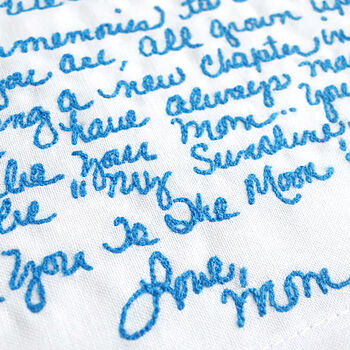 memories to
you are all grown up
ing a new chapter in
have always ma
be your Mom.. You
be "My Sunshine"
You to the Moon"
Love, Mom